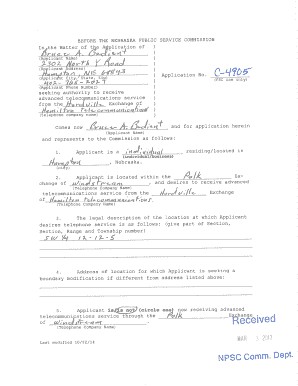 BEFORE THE NEBRASKA PUBLIC SERVICE COMMISSION
In the Matter of the Application of
Bruce A. Bodient
(Applicant Name)
2302 North Y Road
(Applicant Address)
Hampton, NE 68843
(Applicant City, State, Zip)
402-768-2027
(Applicant Phone Number)
Application No. C-4905
(PSC use only)
seeking authority to receive
advanced telecommunications service
from the Hordville Exchange of
Hamilton Telecommunications
(Telephone company name)
Comes now Bruce A. Bodient, and for application herein
(Applicant Name)
and represents to the Commission as follows:
1. Applicant is a individual residing/located in
(individual/business)
Hampton, Nebraska.
(City)
2. Applicant is located within the Polk Ex-
change of Windstream, and desires to receive advanced
(Telephone Company Name)
telecommunications service from the Hordville Exchange
of Hamilton Telecommunications.
(Telephone Company Name)
3. The legal description of the location at which Applicant
desires telephone service is as follows: (give part of Section,
Section, Range and Township number)
SW 1/4 12-12-5
4. Address of location for which Applicant is seeking a
boundary modification if different from address listed above:
5. Applicant is/is not (circle one) now receiving advanced
telecommunications service through the Polk Exchange
of Windstream.
(Telephone Company Name)
Received
Last modified
MAR 3 2017
NPSC Comm. Dept.